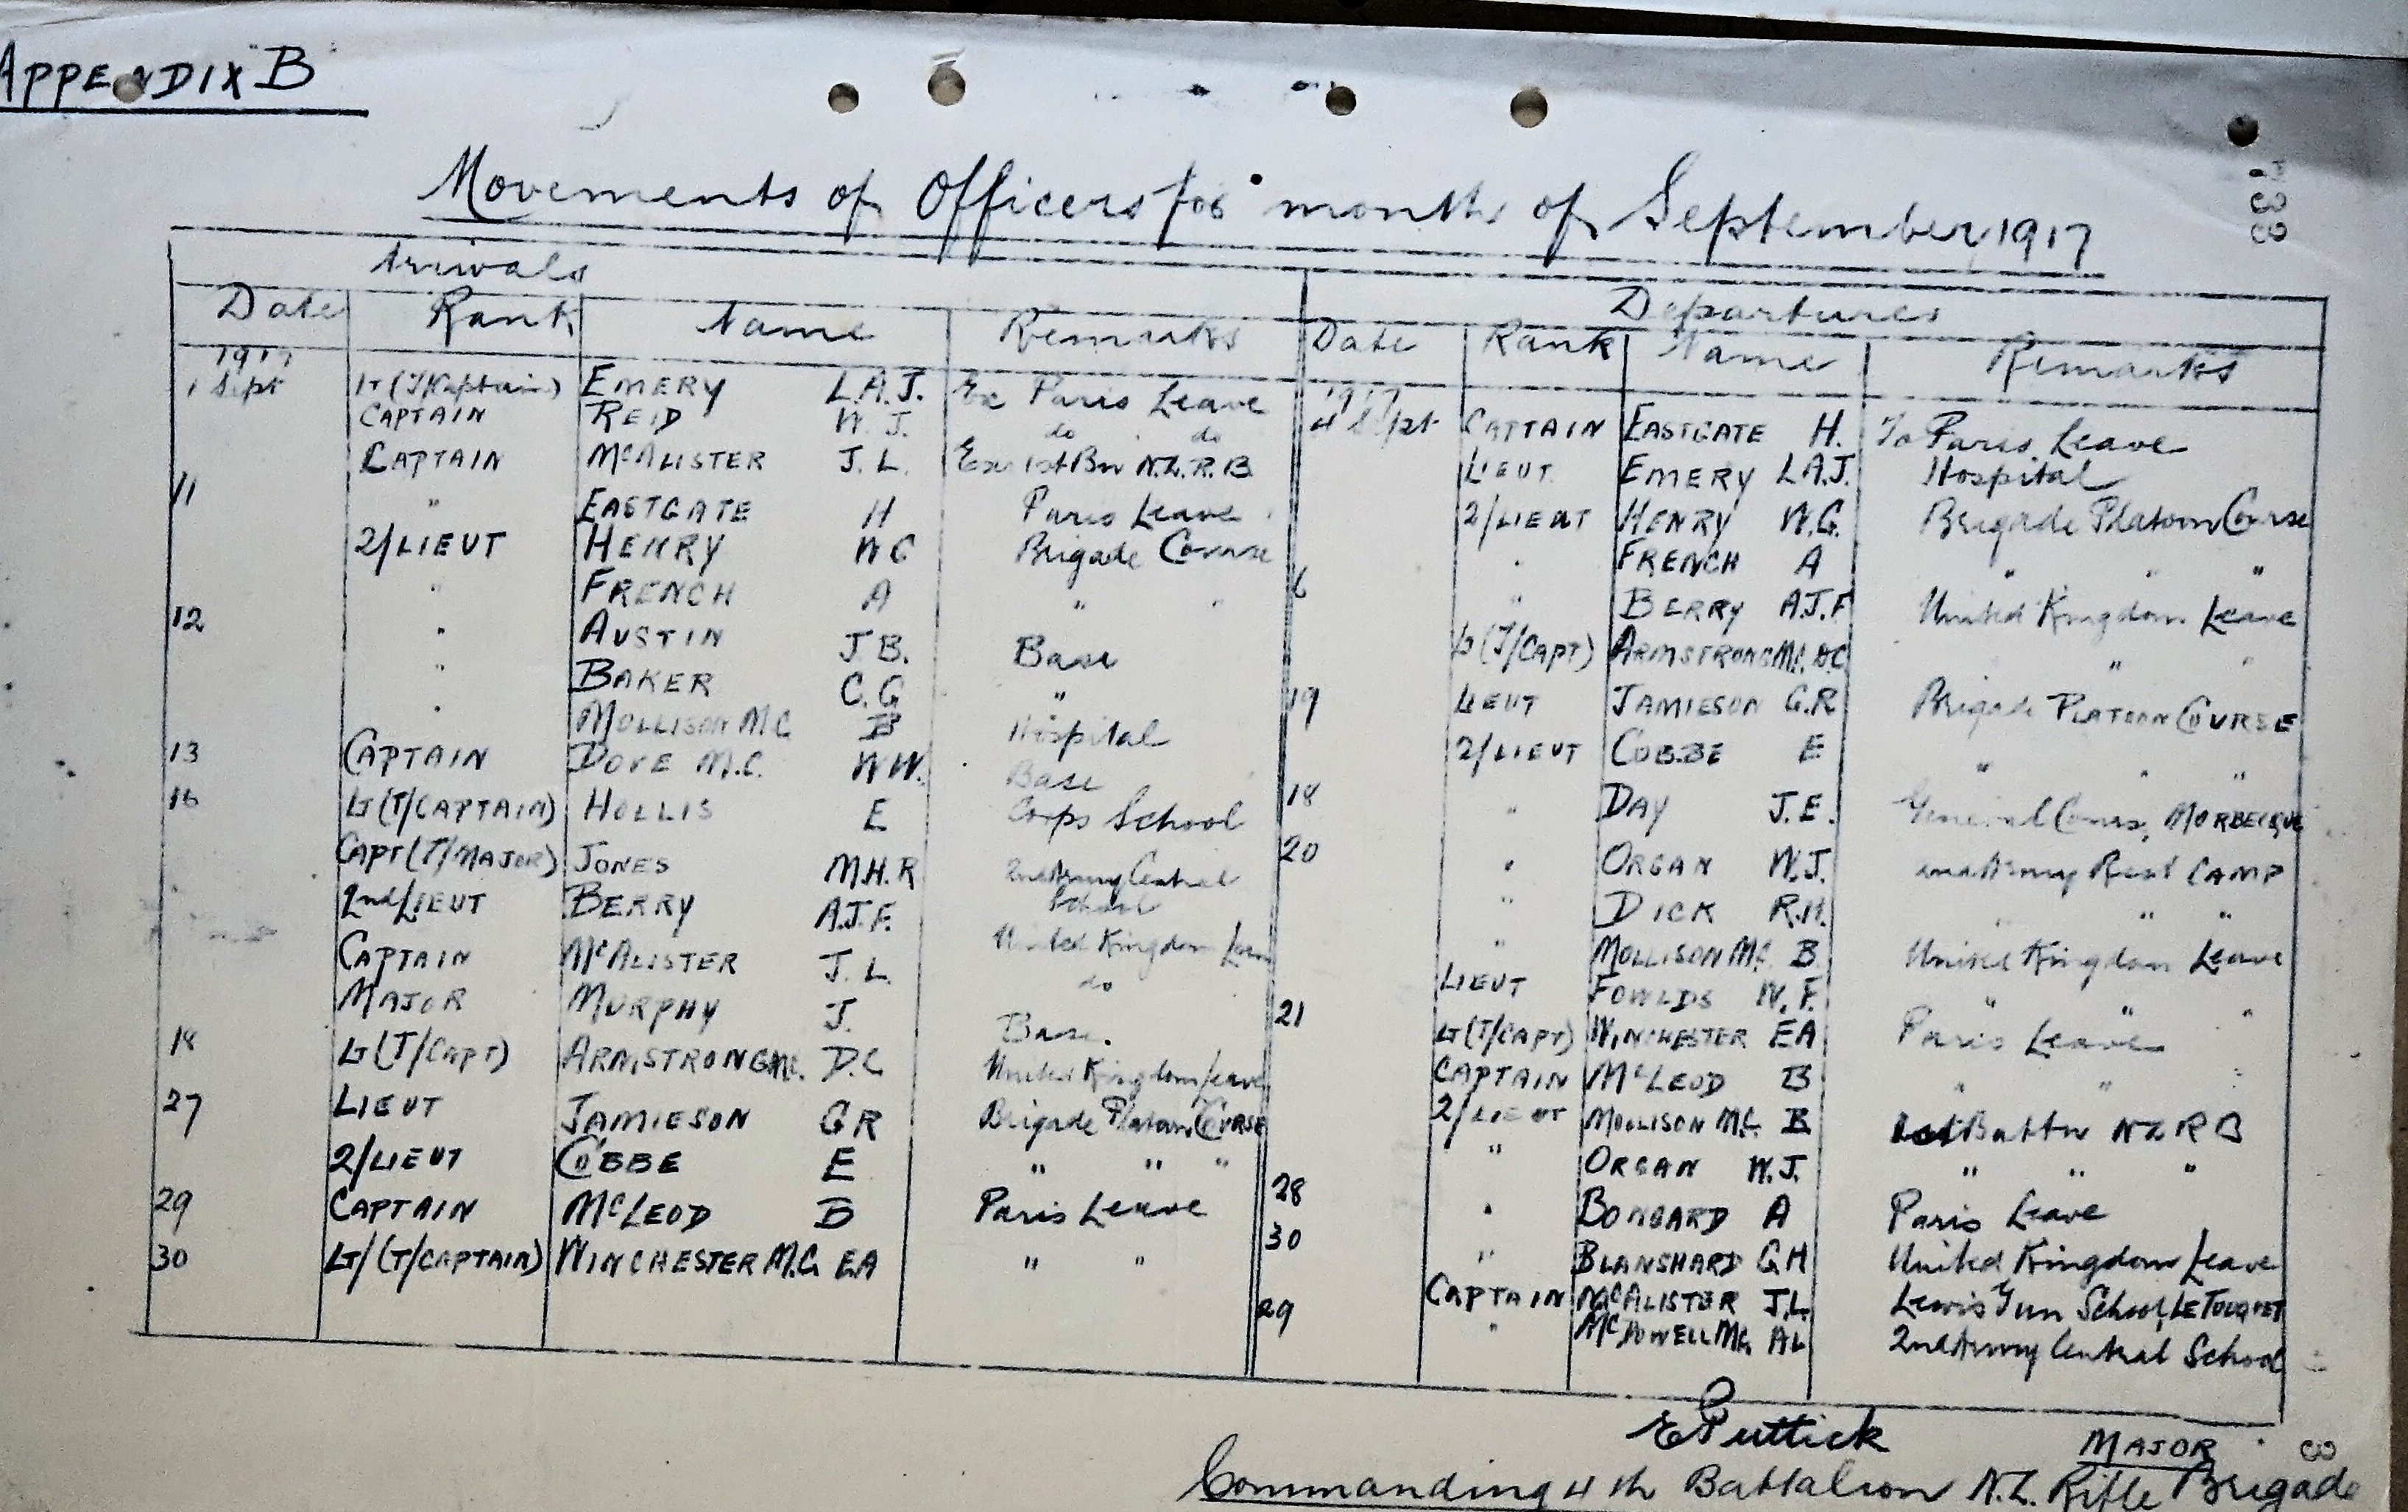 APPENDIX B
Movements of Officers for month of September 1917
Arrivals
Date Rank Name Remarks
1917
1 Sept Lt (T/Captain) EMERY L.A.J. Ex Paris Leave
CAPTAIN REID W.J. do do
CAPTAIN McALISTER J.L. Ex 1st Bn N.Z.R.B.
11 " EASTGATE H Paris Leave
2/LIEUT HENRY WG Brigade Course
" FRENCH A " "
12 " AUSTIN J.B. Base
" BAKER C.G "
" MOLLISON M.C B Hospital
13 CAPTAIN DOVE M.C. W.W. Base
16 Lt (T/CAPTAIN) HOLLIS E Corps School
CAPT (T/MAJOR) JONES M.H.R 2nd Army Central
School
2nd LIEUT BERRY A.J.F. United Kingdom Leave
CAPTAIN McALISTER J.L. do
MAJOR MURPHY J. Base.
18 Lt (T/CAPT) ARMSTRONG M.C. D.C United Kingdom Leave
27 LIEUT JAMIESON GR Brigade Platoon COURSE
2/LIEUT COBBE E " " "
29 CAPTAIN McLEOD B Paris Leave
30 Lt/(T/CAPTAIN) WINCHESTER M.C. EA " "
Departures
Date Rank Name Remarks
1917
4 Sept CAPTAIN EASTGATE H. To Paris Leave
LIEUT EMERY L.A.J. Hospital
2/LIEUT HENRY W.G. Brigade Platoon Course
" FRENCH A " " "
6 " BERRY A.J.F United Kingdom Leave
(T/CAPT) ARMSTRONG M.C. DC " "
19 LIEUT JAMIESON G.R Brigade PLATOON COURSE
2/LIEUT COBBE E " " "
18 " DAY J.E. General Course, MORBECQUE
20 " ORGAN W.J. 2nd Army Rest CAMP
" DICK R.H. " " "
" MOLLISON M.C. B United Kingdom Leave
LIEUT FOWLDS W.F. " " "
21 Lt (T/CAPT) WINCHESTER EA Paris Leave
CAPTAIN McLEOD B " "
2/LIEUT MOLLISON M.C. B 1st Battn NZRB
" ORGAN W.J. " " "
28 " BONGARD A Paris Leave
30 " BLANSHARD GH United Kingdom Leave
CAPTAIN McALISTER J.L. Lewis Gun School, LE TOUQUET
29 " McDOWELL M.C. AL 2nd Army Central School
E Puttick
MAJOR
Commanding 4th Battalion N.Z. Rifle Brigade